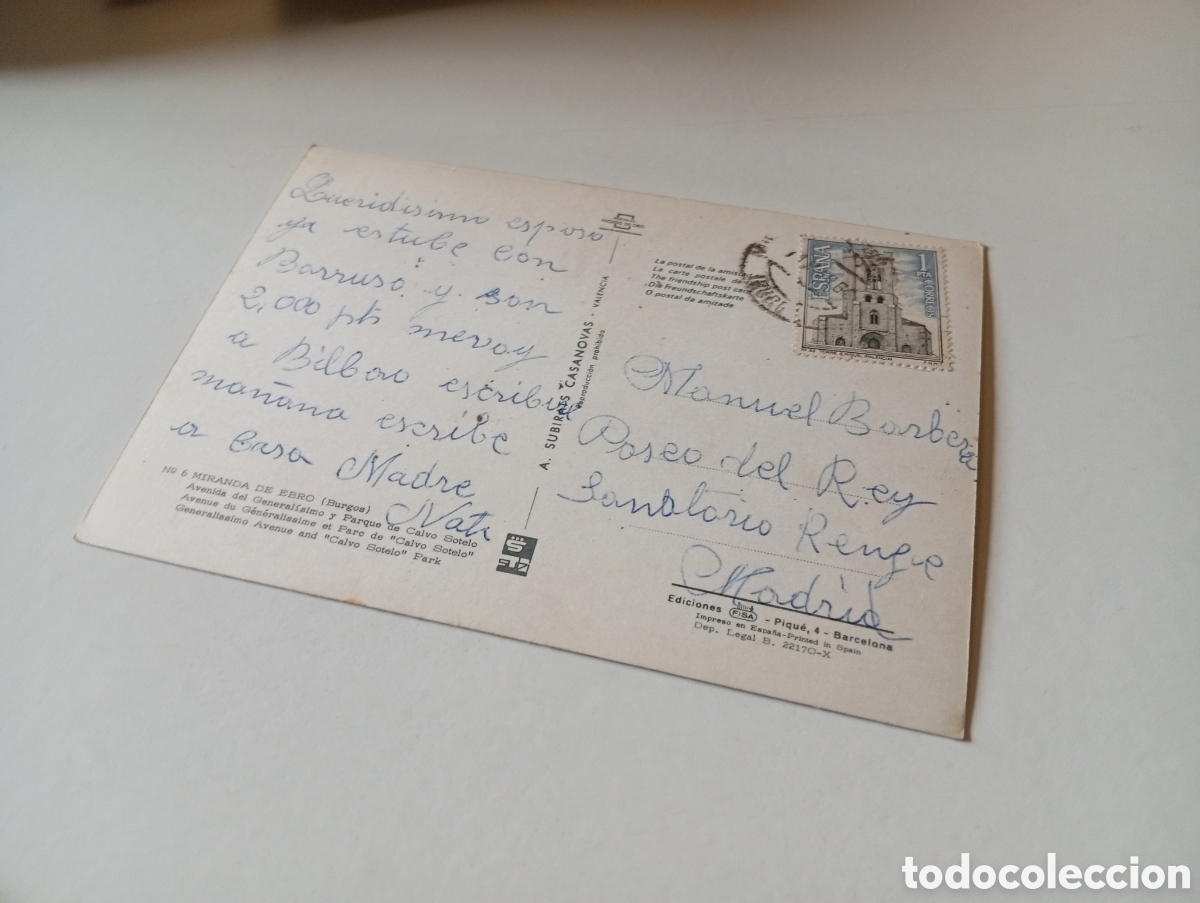 Queridisimo esposo
ya estube con
Barruso y son
2,000 pts mevoy
a Bilbao escribire
mañana escribe
a Casa Madre
Nati
Nº 6 MIRANDA DE EBRO (Burgos)
Avenida del Generalísimo y Parque de Calvo Sotelo
Avenue du Généralissime et Parc de "Calvo Sotelo"
Generalissimo Avenue and "Calvo Sotelo" Park
A. SUBIRATS CASANOVAS - VALENCIA
Reproducción prohibida
La postal de la amistad
La carte postale de
The friendship post card
Die Freundschaftskarte
O postal da amizade
ESPAÑA
1
PTA
CORREOS
Manuel Barbera
Paseo del Rey
Sanatorio
Madrid
Ediciones FISA - Piqué, 4 - Barcelona
Impreso en España-Printed in Spain
Dep. Legal B. 22170-X
todocoleccion